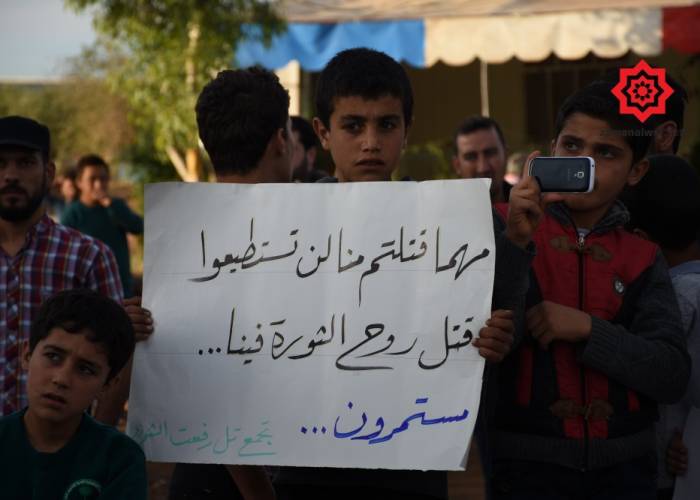 مهما قتلتم منا لن تستطيعوا
قتل روح الثورة فينا...
مستمرون...
تجمع تل رفعت